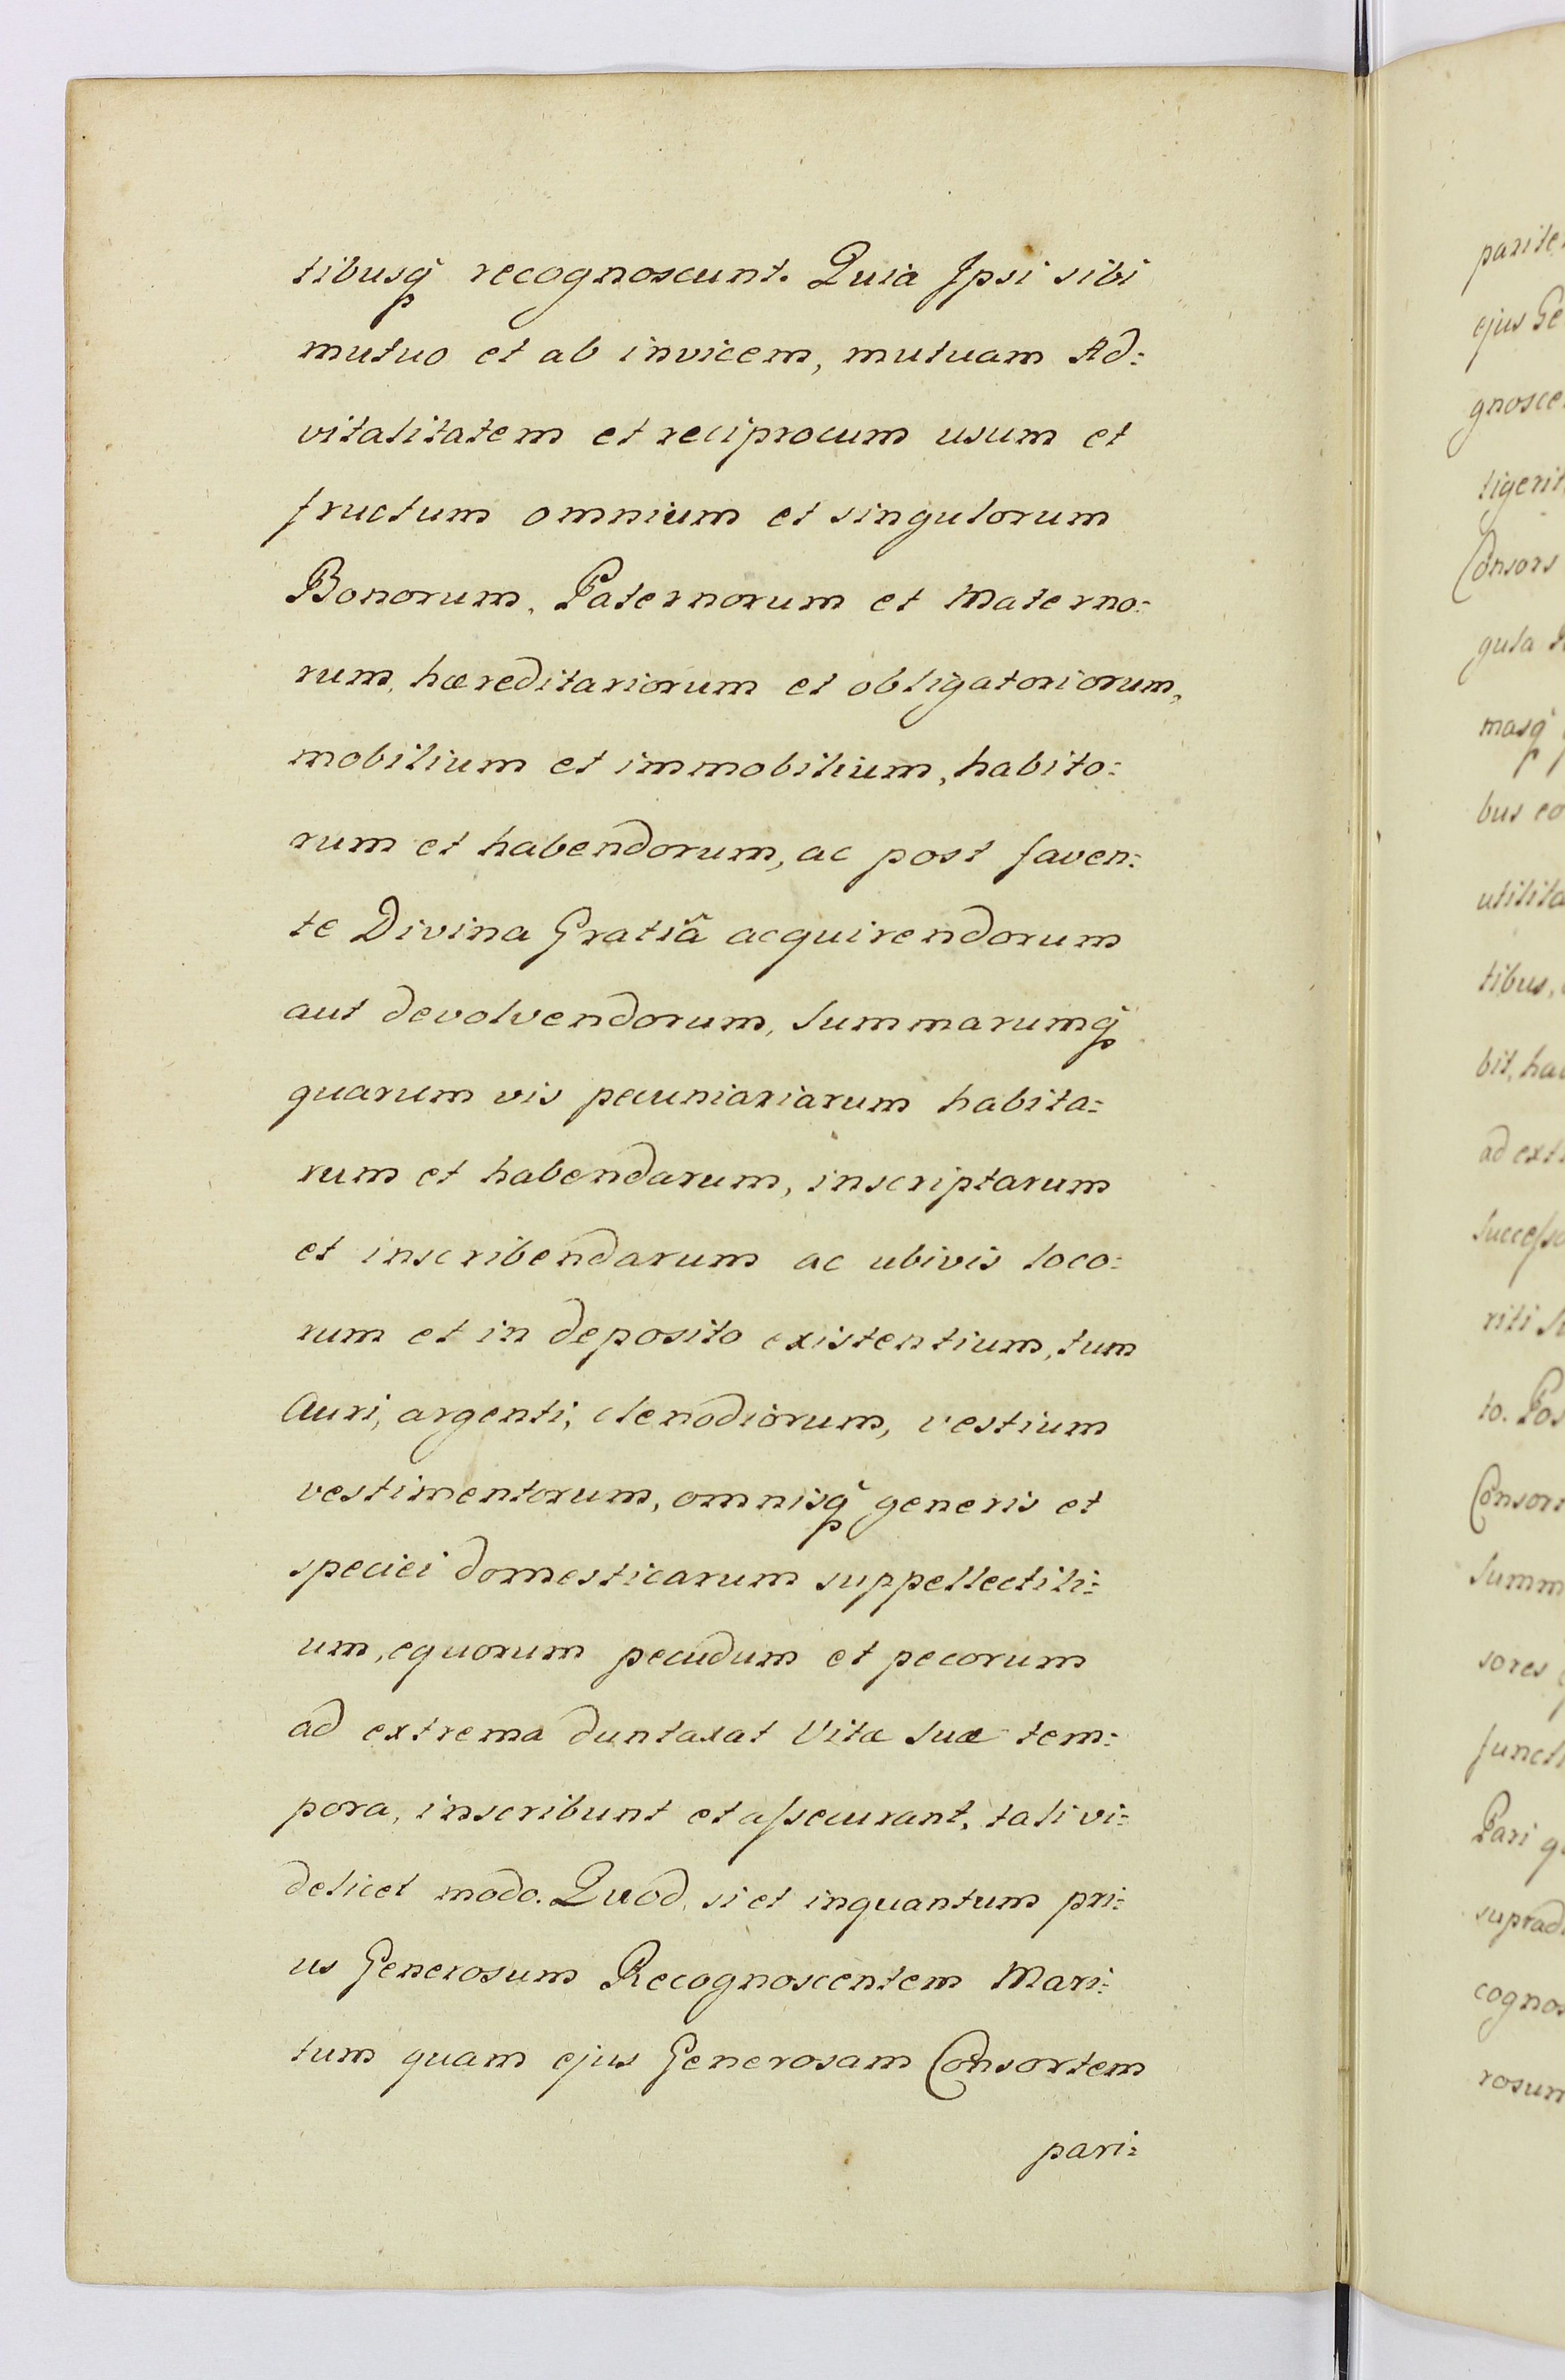 tibusq̃ recognoscunt. Quia Ipsi sibi
mutuo et ab invicem, mutuam Ad=
vitalitatem et reciprocum usum et
fructum omnium et singulorum
Bonorum, Paternorum et Materno=
rum, hæreditariorum et obligatoriorum,
mobilium et immobilium, habito=
rum et habendorum, ac post faven=
te Divina Gratiâ acquirendorum
aut devolvendorum, Summarumq̃
quarum vis pecuniariarum habita=
rum et habendarum, inscriptarum
et inscribendarum ac ubivis loco=
rum et in deposito existentium, tum
Auri, argenti, clenodiorum, vestium
vestimentorum, omnisq̃ generis et
speciei domesticarum suppellectili=
um, equorum pecudum et pecorum
ad extrema duntaxat Vitæ Suæ tem=
pora, inscribunt et aſsecurant, tali vi=
delicet modo. Quod, si et inquantum pri=
us Generosum Recognoscentem Mari=
tum quam ejus Generosam Consortem
pari=
parite
ejus Ge
gnosce
tigerit
Consors
gula
masq̃
bus eo
utilita
tibus,
bit, ha
ad ext
Succeſso
riti
to. Pos
Consor
Summ
sores
functi
Pari q
suprad
cognos
rosum